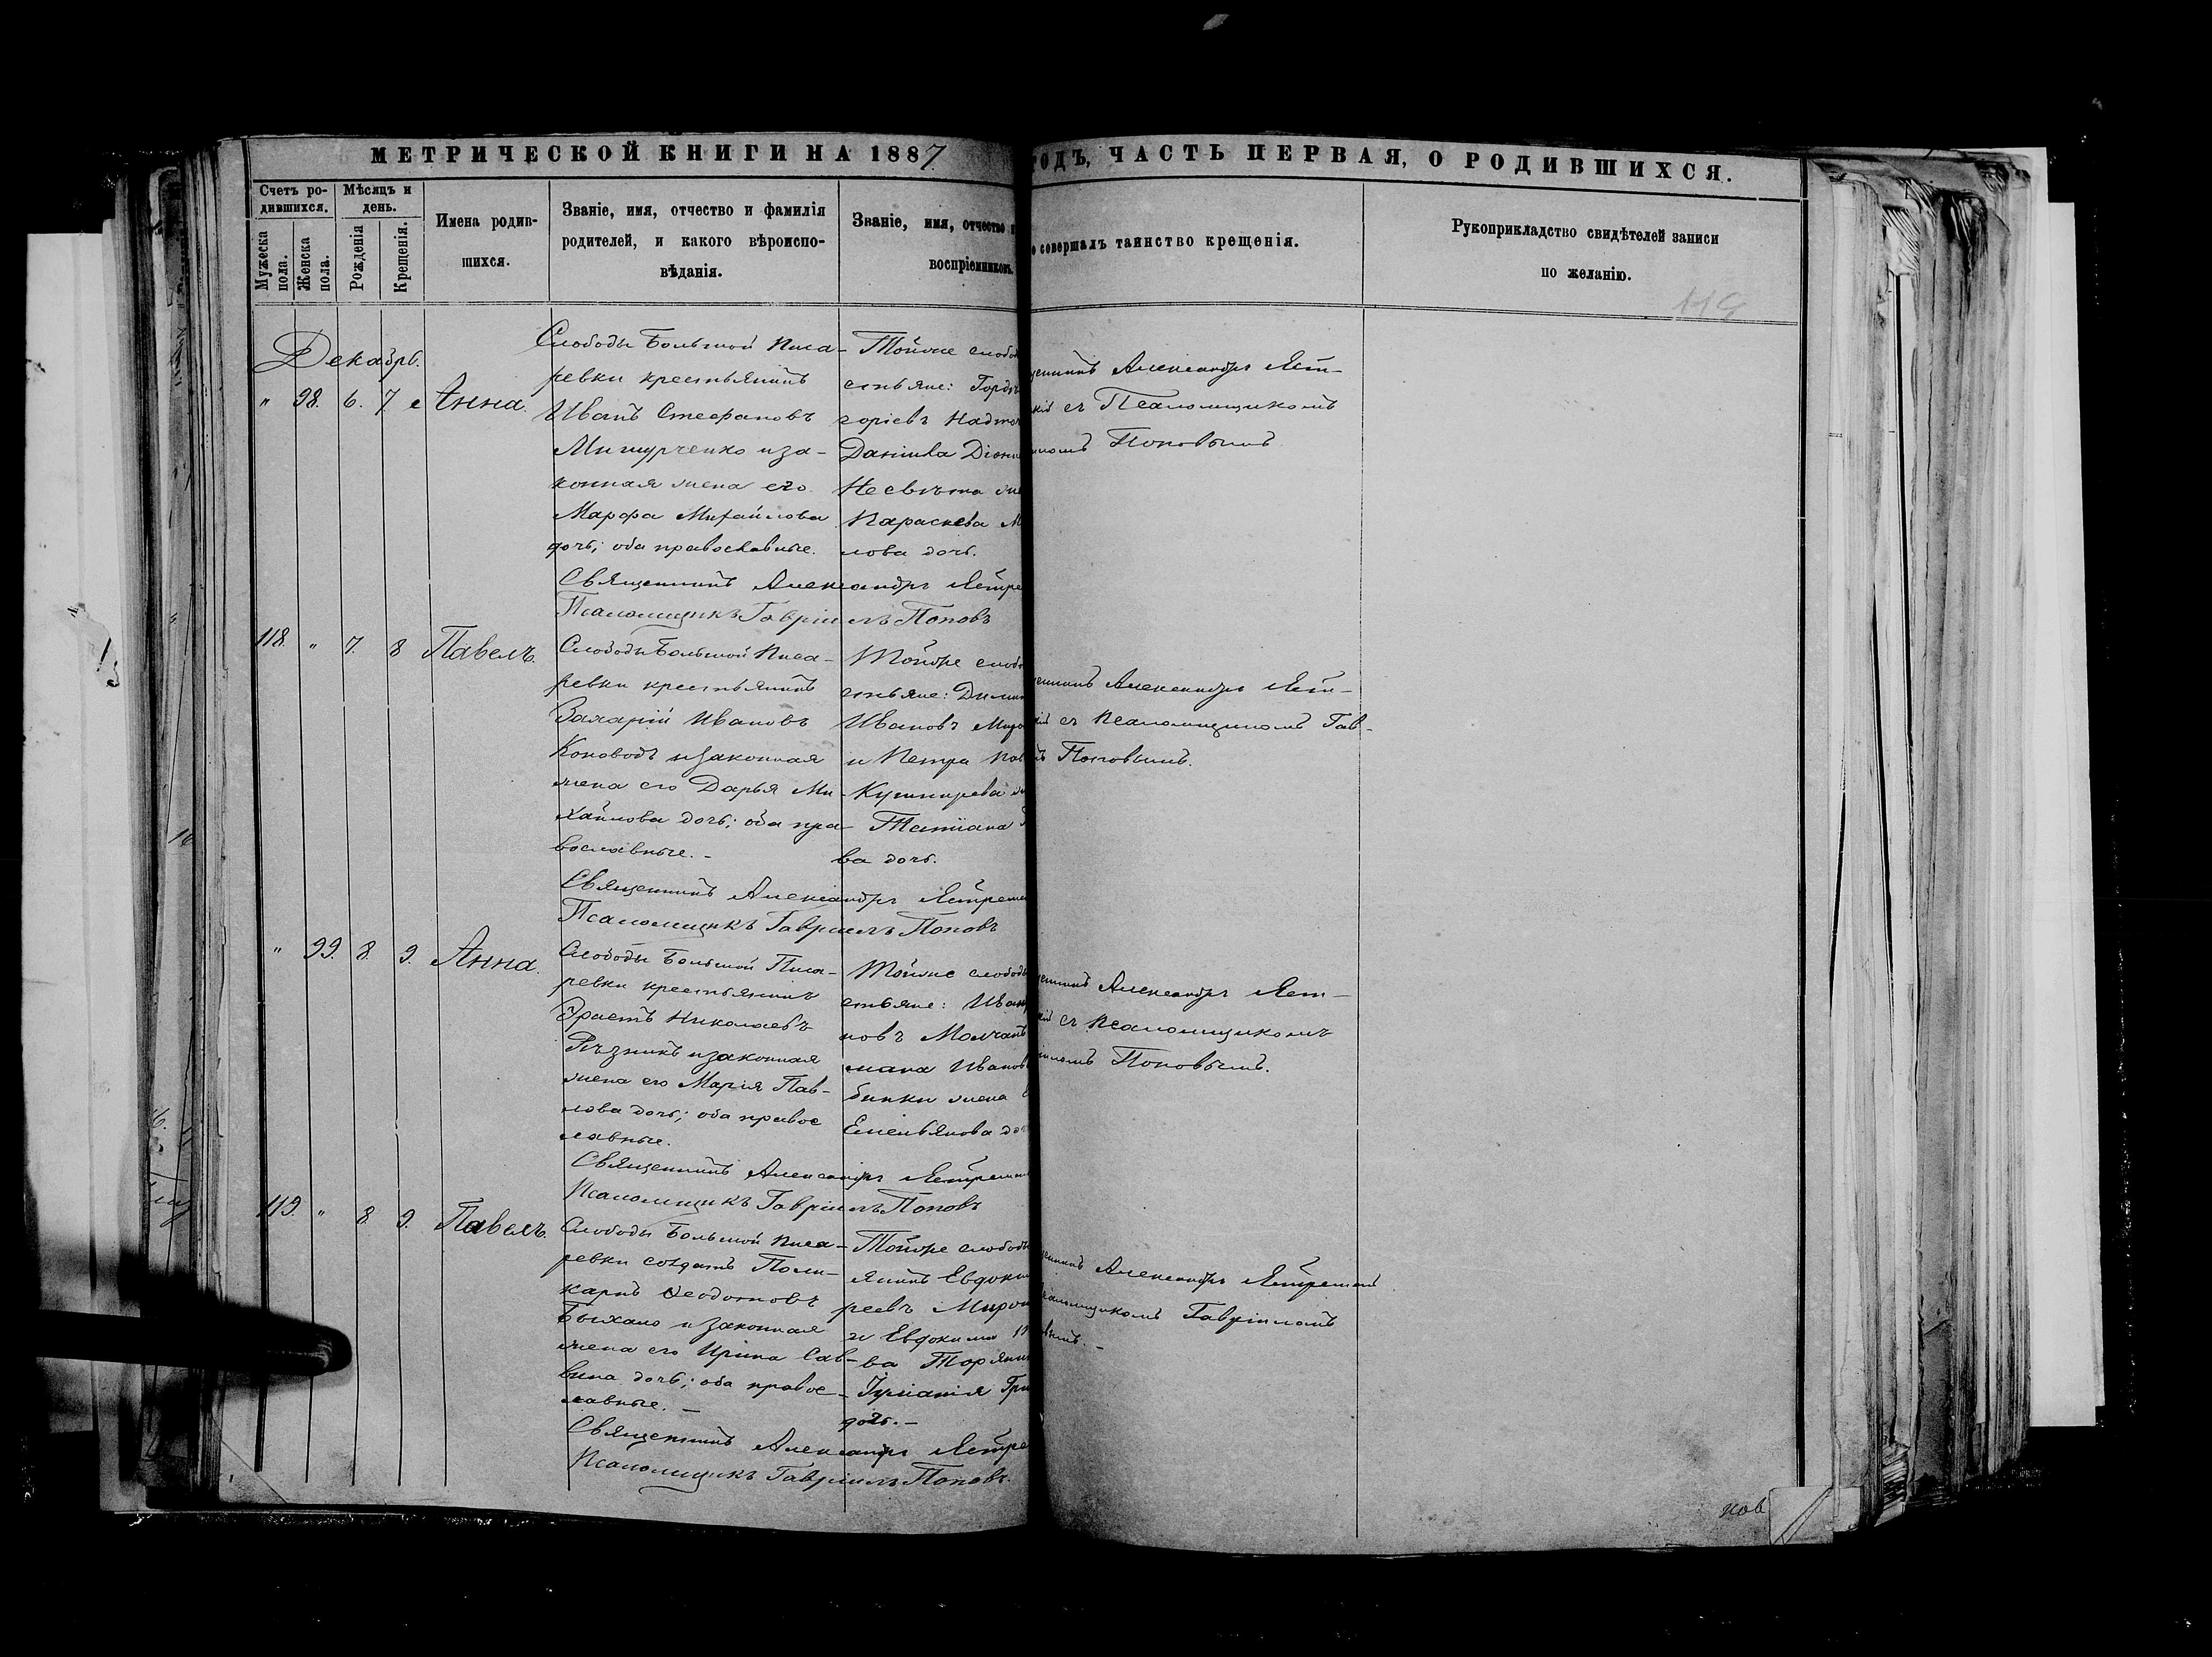 МЕТРИЧЕСКОЙ КНИГИ НА 1887
ГОДЪ, ЧАСТЬ ПЕРВАЯ, О РОДИВШИХСЯ.
Счетъ родившихся.
Мужеска пола.
Женска пола.
Мѣсяцъ и день.
Рожденія
Крещенія.
Имена родившихся.
Званіе, имя, отчество и фамилія
родителей, и какого вѣроиспо-
вѣданія.
Званіе, имя, отчество и
воспріемниковъ.
совершалъ таинство крещенія.
Рукоприкладство свидѣтелей записи
по желанію.
119
Декабрь.
" 98. 6. 7. Анна.
Слободы Большой Писа-
ревки крестьянинъ
Иванъ Стефановъ
Мишурченко и за-
конная жена его
Марфа Михайлова
дочь; оба православные.
Тойже слобод
стьяне:
горіевъ
Даніила
жe
Параскева М
лова дочь.
Александръ Яст-
съ Псаломщикомъ
Поповымъ
Священникъ Александръ Ястре
Псаломщикъ Гавріилъ Поповъ
118. " 7. 8 Павелъ.
Слободы Большой Писа-
ревки крестьянинъ
Захарій Ивановъ
Коноводъ и законная
жена его Дарья Ми-
хайлова дочь; оба пра-
вославные. -
Тойже слобо
стьяне:
Ивановъ
и Петра
Татіана
ва дочь.
Александръ Яст-
съ Псаломщикомъ Гав-
Поповымъ.
Священникъ Александръ Ястрем
Псаломщикъ Гавріилъ Поповъ
" 99. 8. 9. Анна.
Слободы Большой Писа-
ревки крестьянинъ
Эрастъ Николаевъ
Рѣзникъ и законная
жена его Марія Пав-
лова дочь; оба правос
лавные.
Тойже слободы
стьяне: Иванъ
новъ Молчанъ
мана Иванов
бинки жена
Емельянова до
Александръ Яст-
съ Псаломщикомъ
Поповымъ.
Священникъ Александръ Ястрем
Псаломщикъ Гавріилъ Поповъ
119. " 8. 9. Павелъ.
Слободы Большой Писа-
ревки солдатъ Поли-
карпъ Ѳеодотовъ
Быхало и законная
жена его Ирина Сав-
вина дочь; оба правос-
лавные. -
Тойже слободы
янинъ Евдоки
реевъ Мирон
и Евдокима
ва
Іуліанія Гри
дочь. -
Александръ Ястремскій
Гавріиломъ
Священникъ Александръ Ястре
Псаломщикъ Гавріилъ Поповъ.